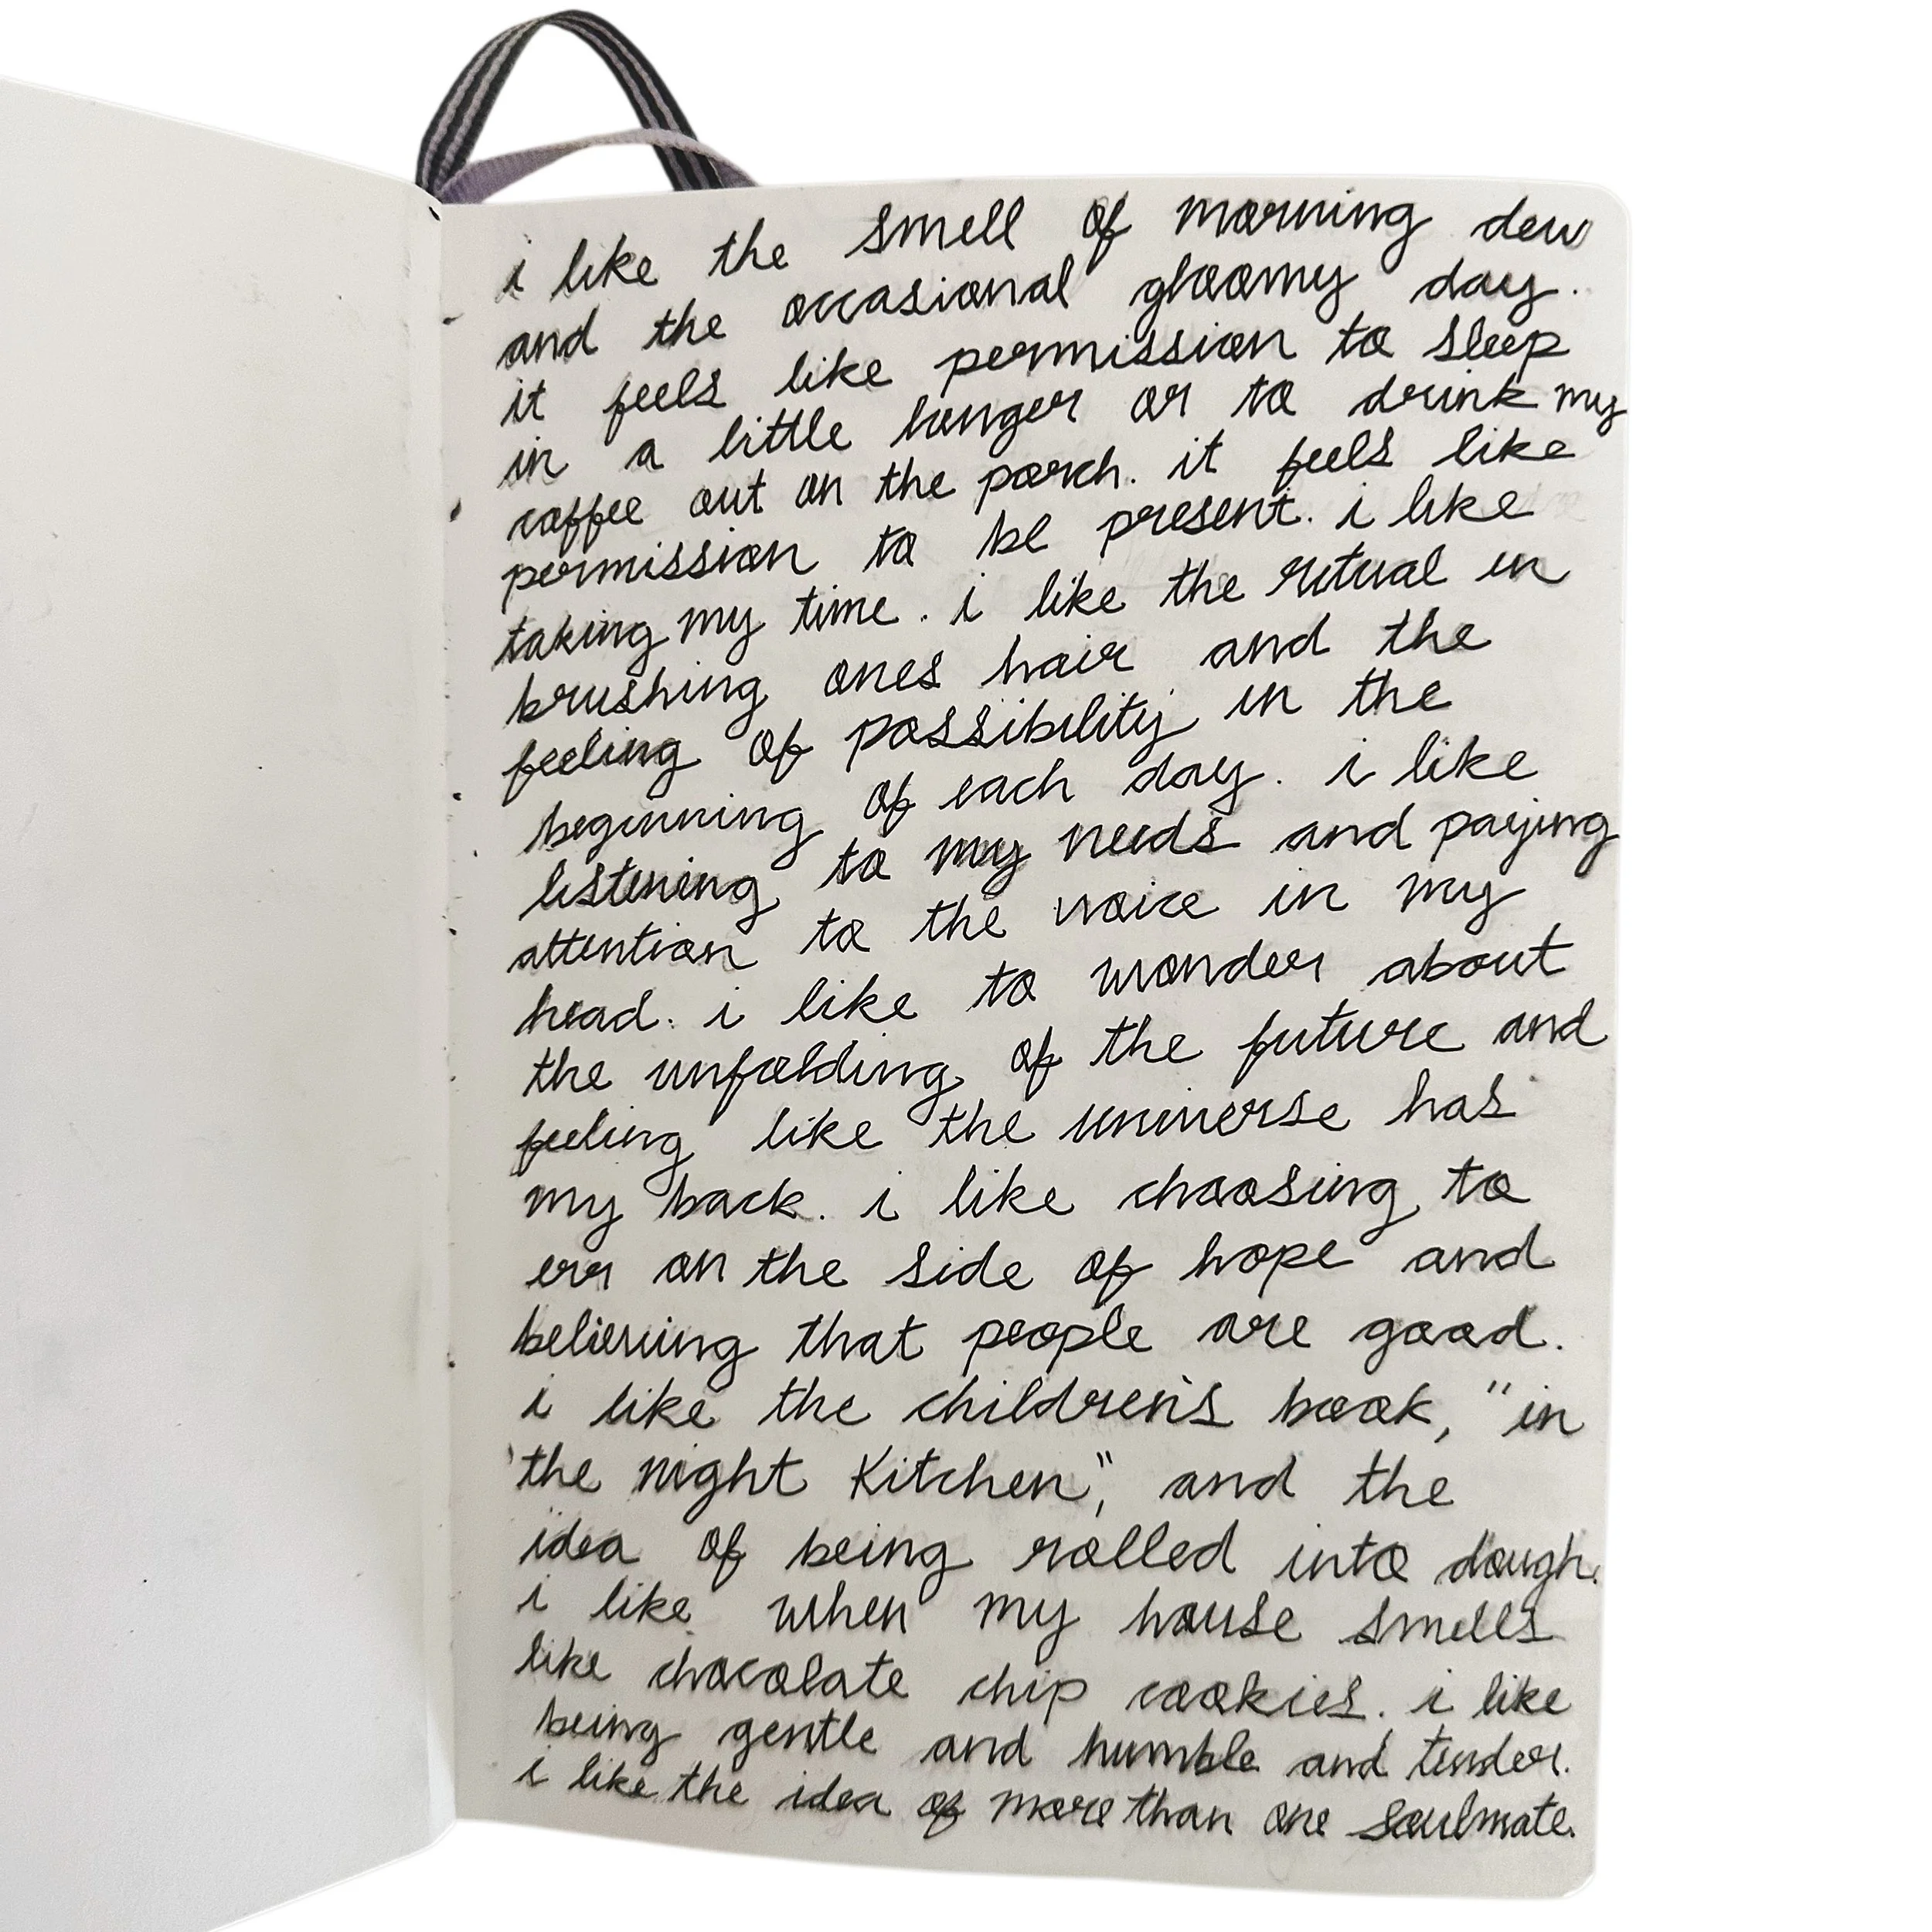 i like the smell of morning dew
and the occasional gloomy day.
it feels like permission to sleep
in a little longer or to drink my
coffee out on the porch. it feels like
permission to be present. i like
taking my time. i like the ritual in
brushing ones hair and the
feeling of possibility in the
beginning of each day. i like
listening to my needs and paying
attention to the voice in my
head. i like to wonder about
the unfolding of the future and
feeling like the universe has
my back. i like choosing to
err on the side of hope and
believing that people are good.
i like the children's book, "in
the night Kitchen", and the
idea of being rolled into dough.
i like when my house smells
like chocolate chip cookies. i like
being gentle and humble and tender.
i like the idea of more than one soulmate.